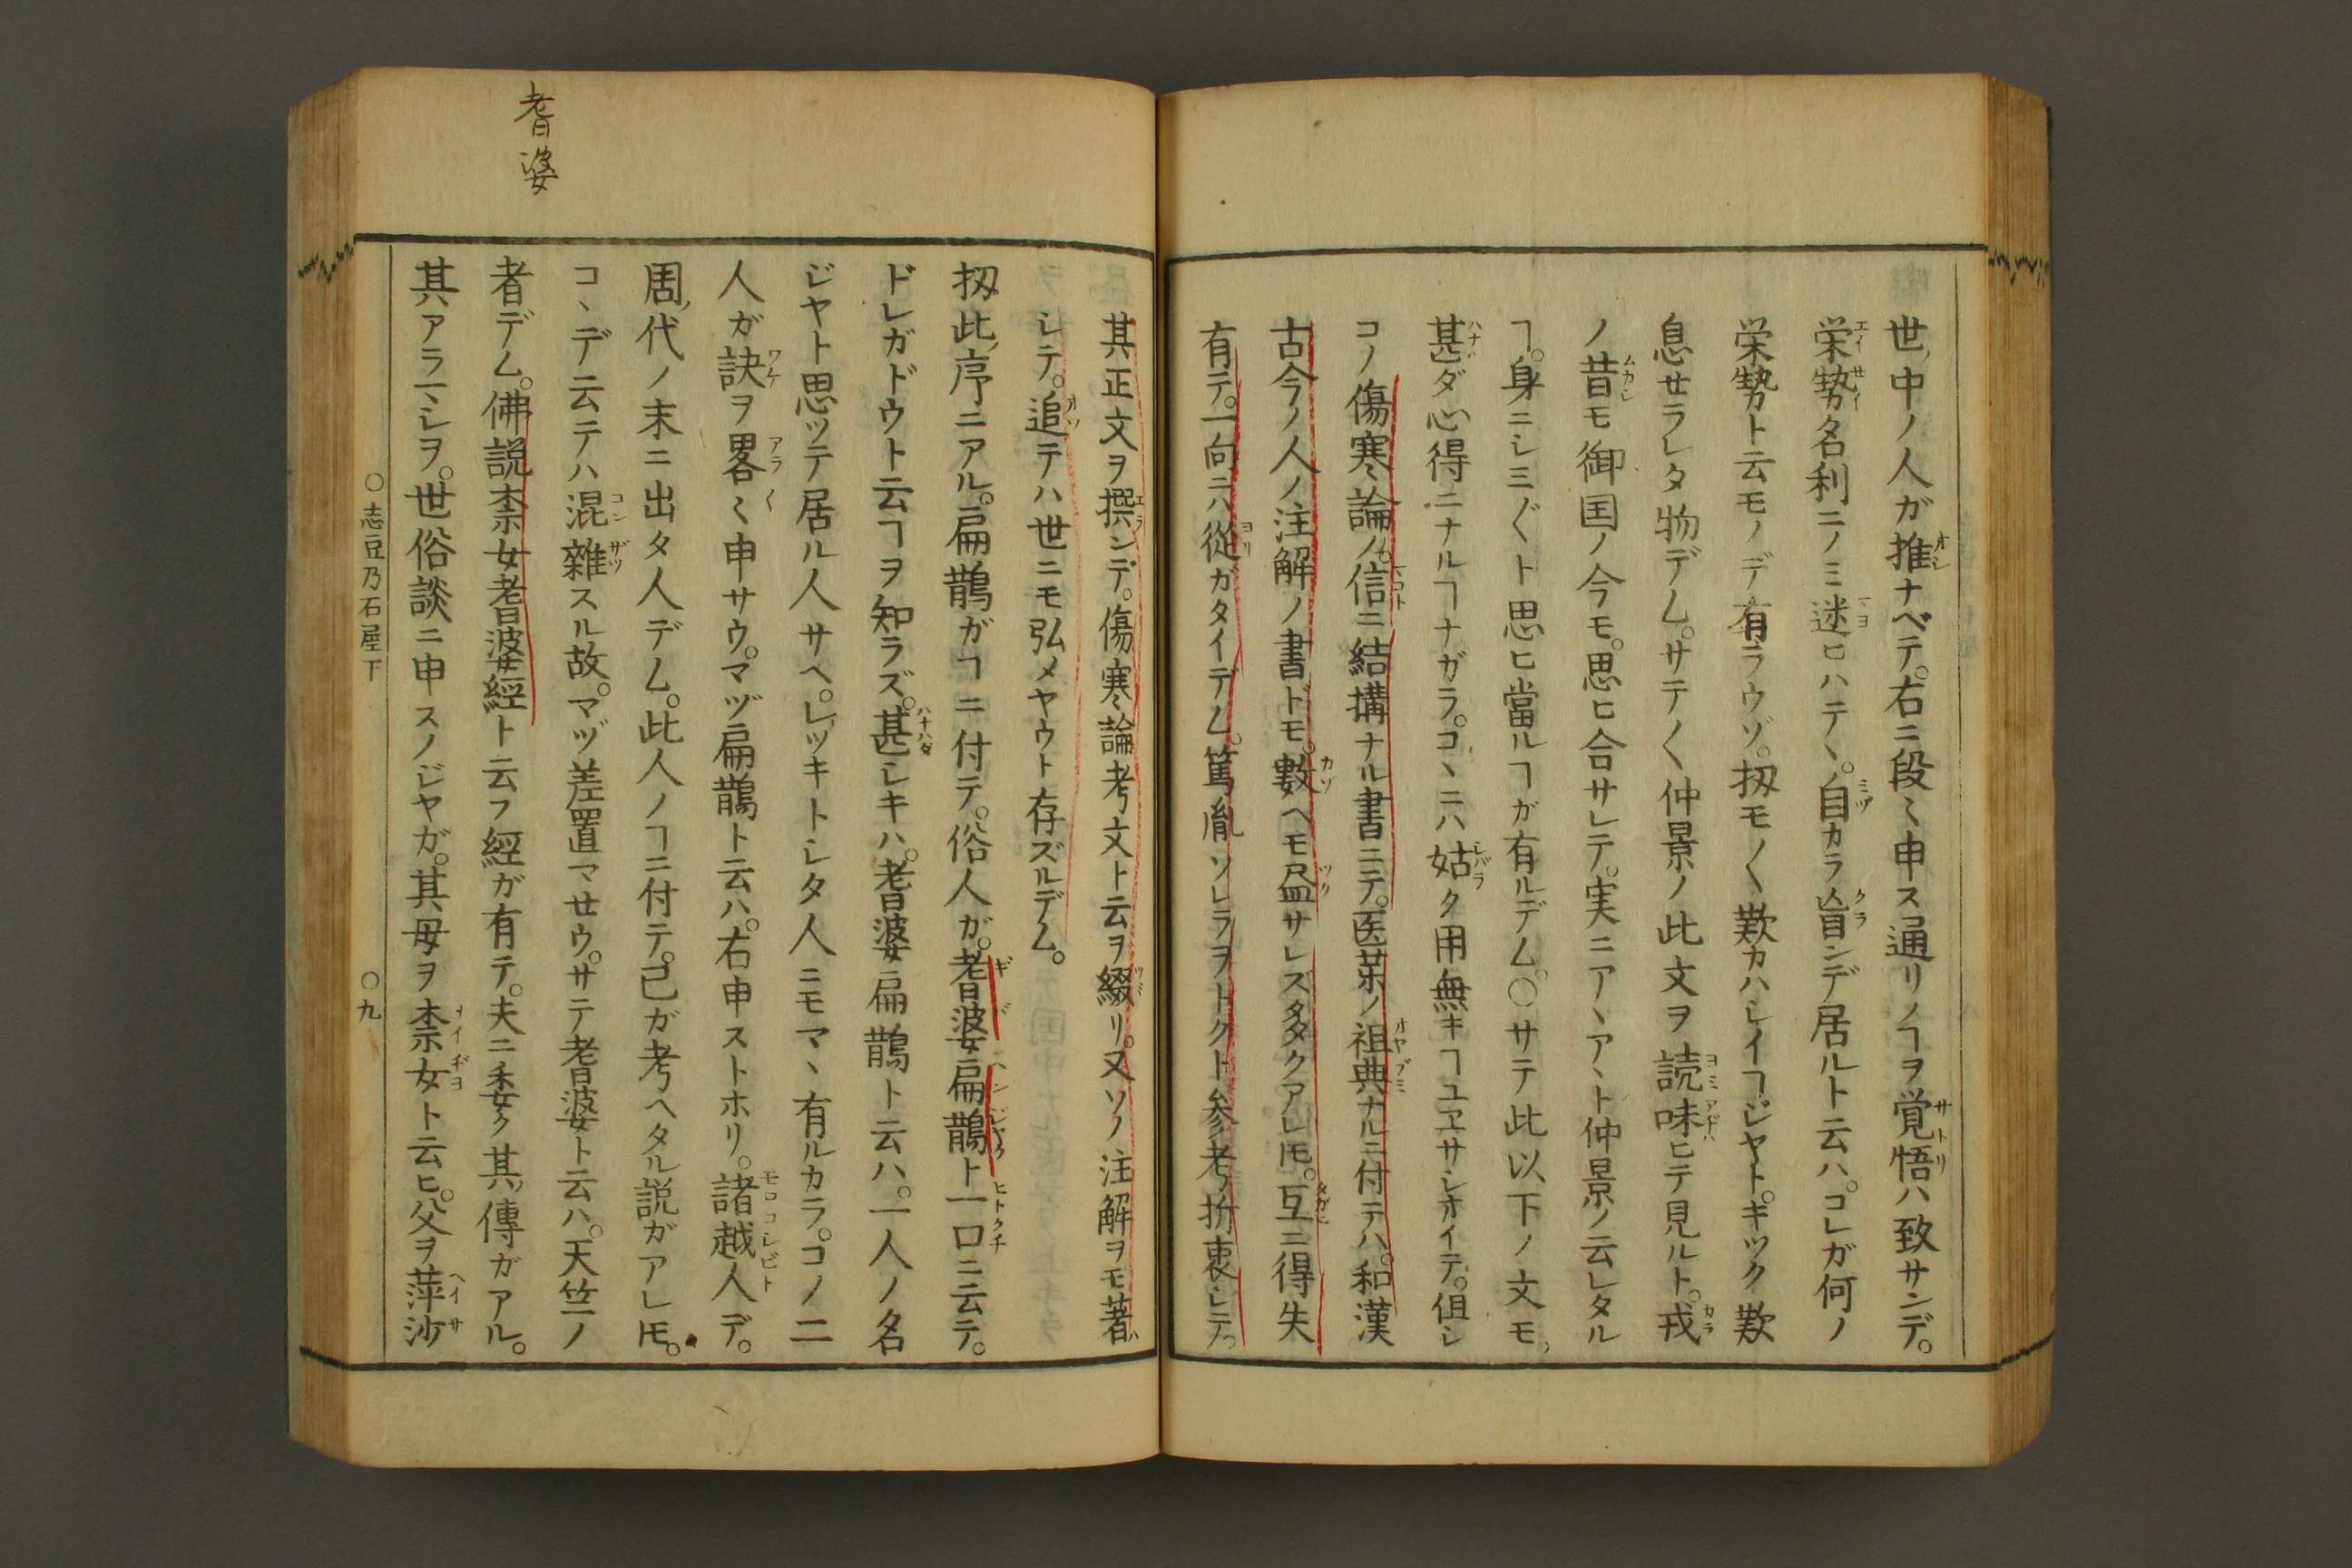 世ノ中ノ人ガ推ナベテ。右ニ段〻申ス通リノヿヲ覚悟ハ致サンデ。
栄勢名利ニノミ迷ヒハテヽ。自カラ昏ンデ居ルト云ハ。コレガ何ノ
栄勢ト云モノデ有ラウゾ。扨モ〱歎カハレイヿジヤト。ギツク歎
息せラレタ物デム。サテ〱仲景ノ此文ヲ読味ヒテ見ルト。戎
ノ昔モ御国ノ今モ。思ヒ合サレテ。実ニアヽアヽト仲景ノ云レタル
ヿ。身ニシミ〲ト思ヒ當ルヿガ有ルデム。○サテ此以下ノ文モ。
甚ダ心得ニナルヿナガラ。コヽニハ姑ク用無キヿユヱサシオイテ。但シ
コノ傷寒論ノ。信ニ結構ナル書ニテ。医業ノ祖典ナルニ付テハ。和漢
古今ノ人ノ注解ノ書ドモ。數ヘモ盡サレズ多クアレㇳモ。互ニ得失
有テ。一向ニハ從ガタイデム。篤胤ソレラヲトクト参考折衷シテ。
其正文ヲ撰ンデ。傷寒論考文ト云ヲ綴リ。又ソノ注解ヲモ著ハ
シテ。追テハ世ニモ弘メヤウト存ズルデム。
扨此ノ序ニアル。扁鵲ガヿニ付テ。俗人ガ。耆婆扁鵲ト一口ニ云テ。
ドレガドウト云ヿヲ知ラズ。甚シキハ。耆婆扁鵲ト云ハ。一人ノ名
ジヤト思ツテ居ル人サヘ。レツキトシタ人ニモマヽ有ルカラ。コノ二
人ガ訣ヲ畧〻申サウ。マヅ扁鵲ト云ハ。右申ストホリ。諸越人デ。
周ノ代ノ末ニ出タ人デム。此人ノヿニ付テ。己ガ考ヘタル説ガアレㇳモ。
コヽデ云テハ混雜スル故。マヅ差置マせウ。サテ耆婆ト云ハ。天竺ノ
者デム。佛説柰女耆婆經ト云フ經ガ有テ。夫ニ委ク其ノ傳ガアル。
其アラマシヲ。世俗談ニ申スノジヤガ。其母ヲ柰女ト云ヒ。父ヲ萍沙
耆婆
○志豆乃石屋下
○九